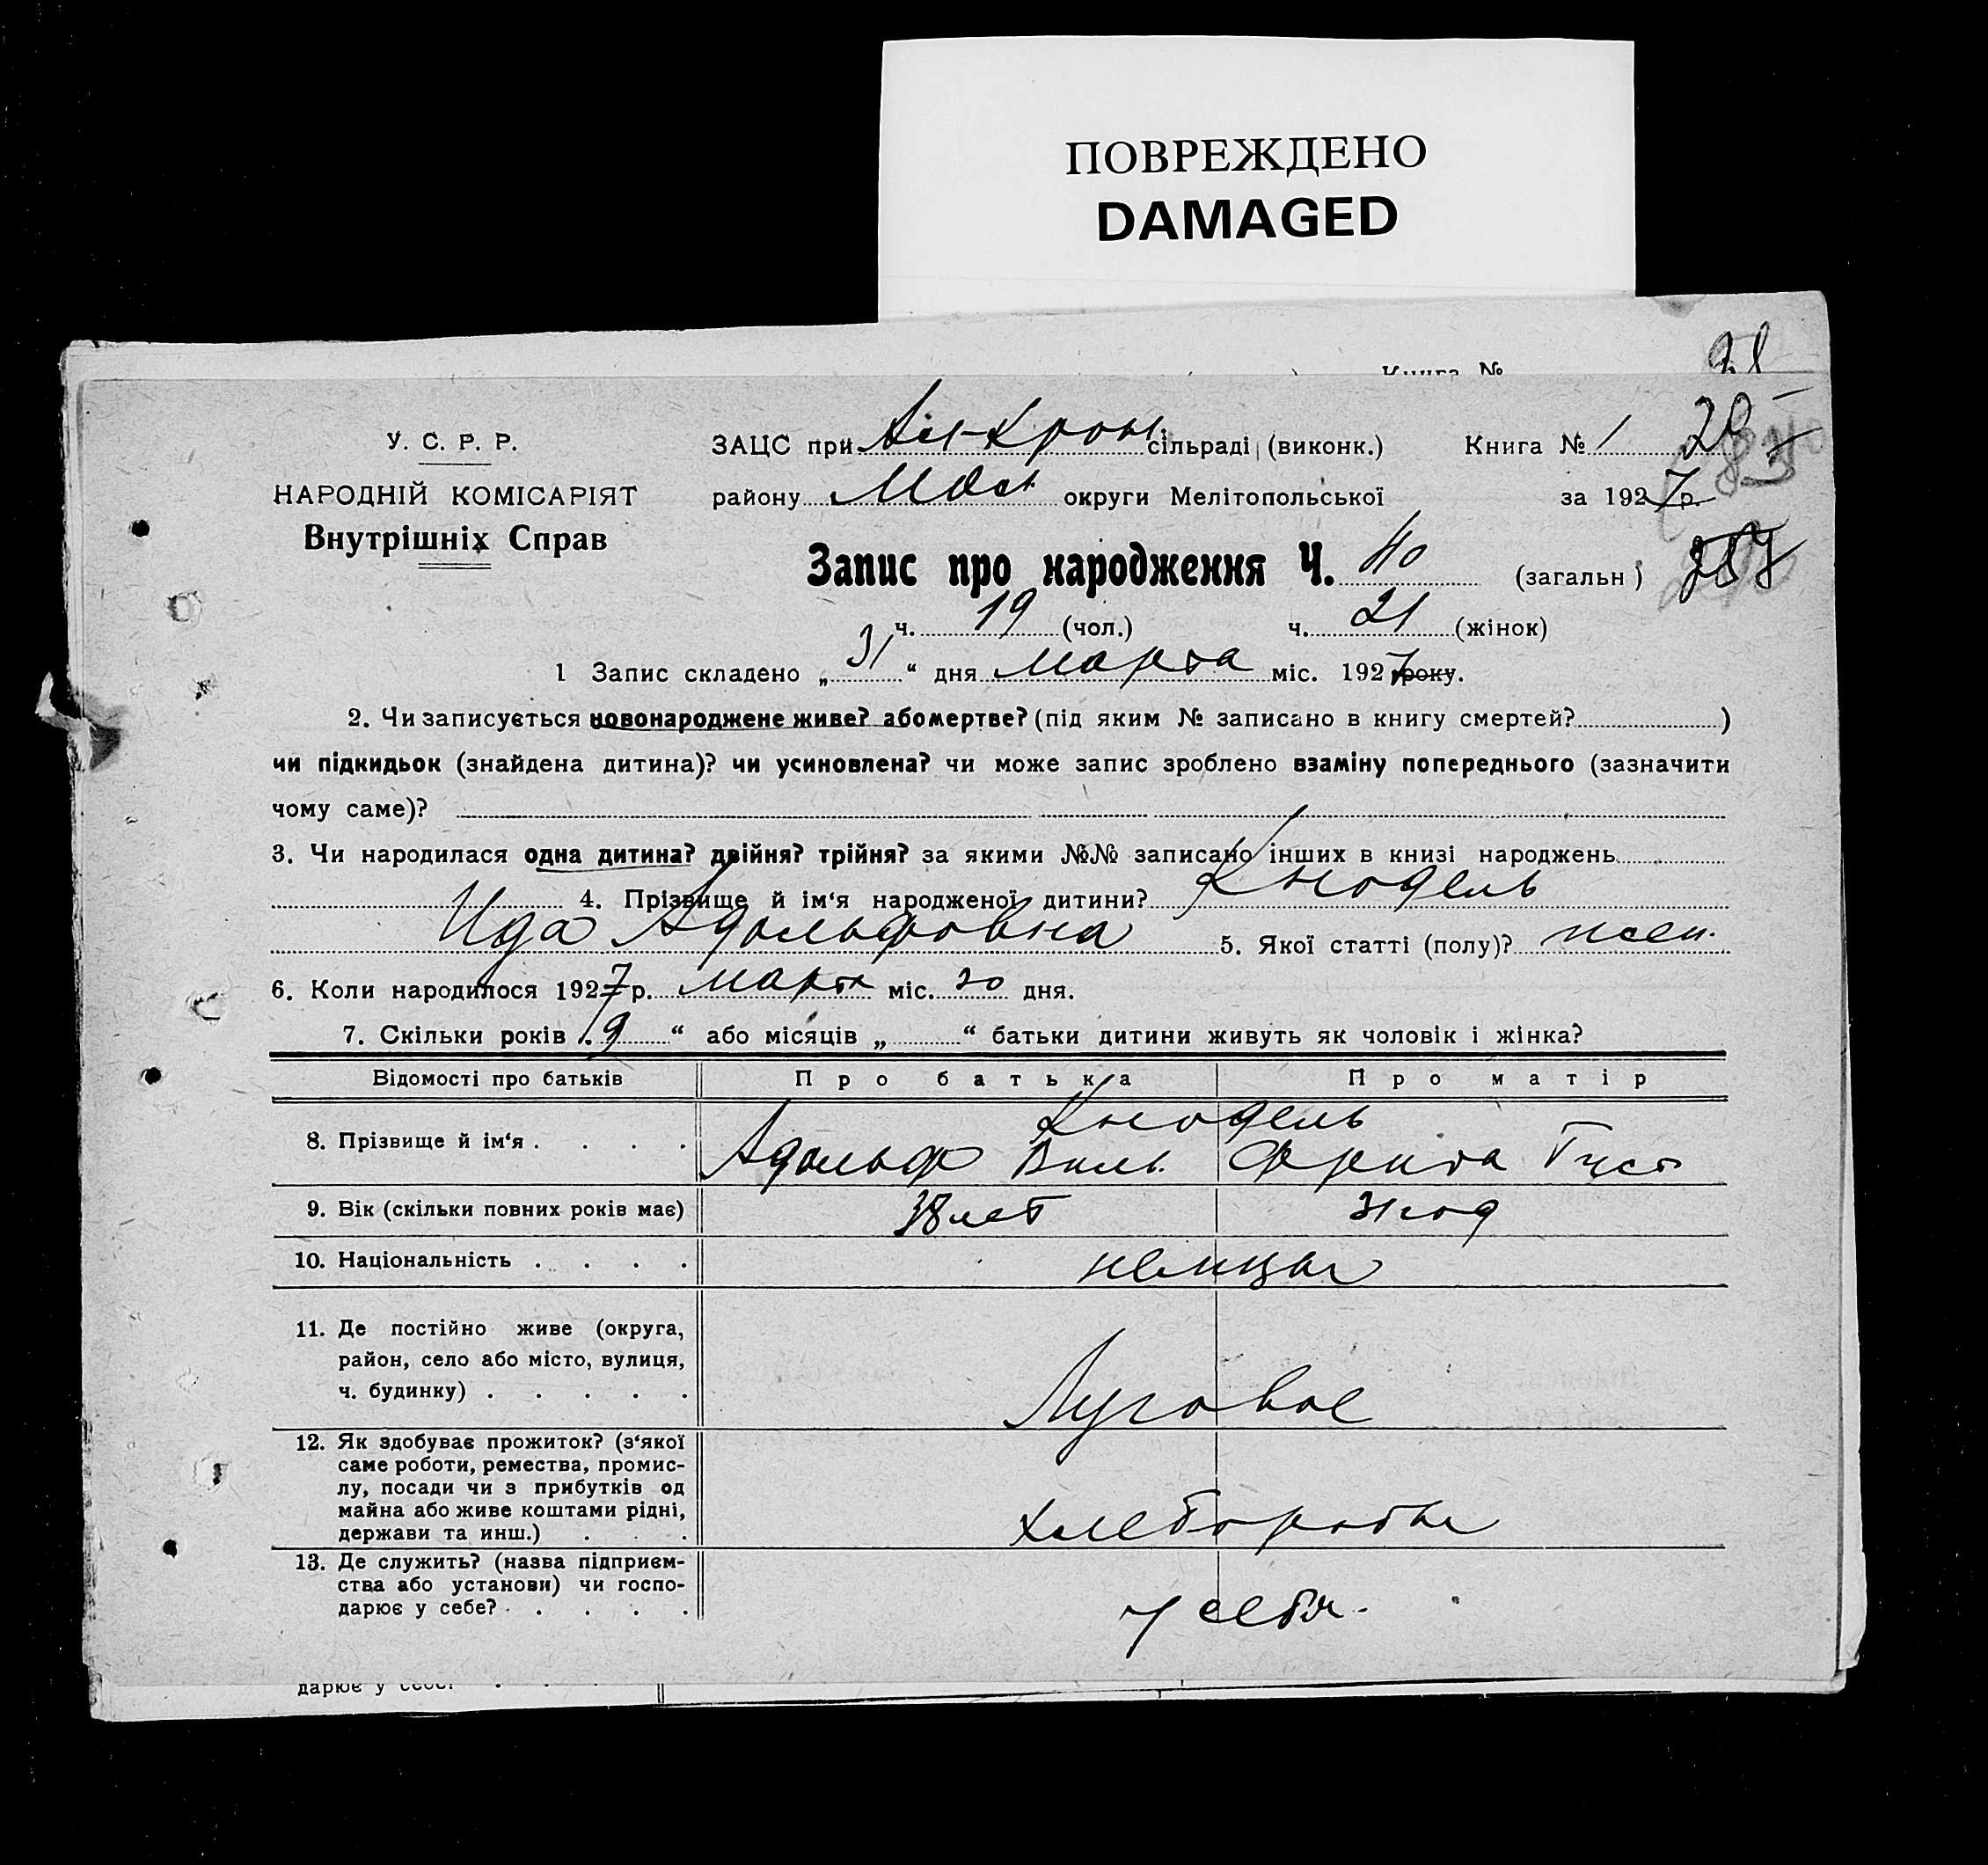 ПОВРЕЖДЕНО
DAMAGED
Книга №
28
У. С. Р. Р.
НАРОДНІЙ КОМІСАРІЯТ
Внутрішніх Справ
ЗАЦС при Ал-Крон. сільраді (виконк.) Книга № 1
району Мол. округи Мелітопольської за 1927 р.
Запис про народження Ч. 40 (загальн)
ч. 19 (чол.) ч. 21 (жінок)
1 Запис складено „31“ дня марта міс. 1927 року.
2. Чи записується новонароджене живе? або мертве? (під яким № записано в книгу смертей? )
чи підкидьок (знайдена дитина)? чи усиновлена? чи може запис зроблено взаміну попереднього (зазначити
чому саме)?
3. Чи народилася одна дитина? двійня? трійня? за якими №№ записано інших в книзі народжень
4. Прізвище й ім‘я народженої дитини? Кнодель
Ида Адольфовна 5. Якої статті (полу)? жен.
6. Коли народилося 1927 р. марта міс. 20 дня.
7. Скільки років „9“ або місяців „ “ батьки дитини живуть як чоловік і жінка?
Відомості про батьків Про батька Про матір
8. Прізвище й ім‘я . . . . . Кнодель
Адольф Виль. Фрида Густ
9. Вік (скільки повних років має) 38 лет 31 год
10. Національність . . . . немцы
11. Де постійно живе (округа,
район, село або місто, вулиця,
ч. будинку) . . . . . Луговое
12. Як здобуває прожиток? (з‘якої
саме роботи, ремества, промис-
лу, посади чи з прибутків од
майна або живе коштами рідні,
держави та инш.) . . . хлеборобы
13. Де служить? (назва підприєм-
ства або установи) чи госпо-
дарює у себе? . . . . . у себя.
дарює у себе?